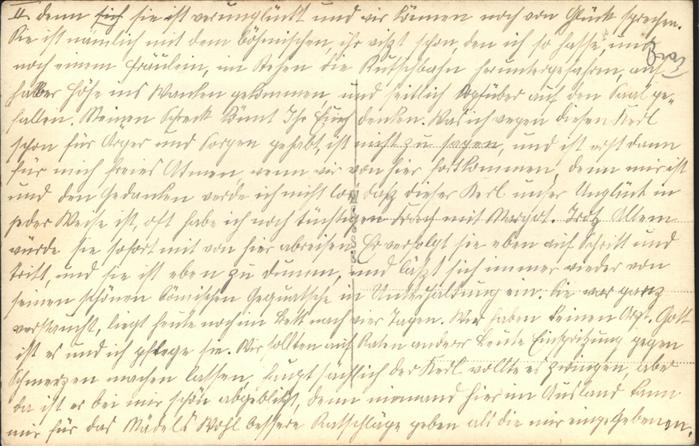 II. denn sich sie ist verunglückt und wir können noch von Glück sprechen.
Sie ist nämlich mit dem böhmischen, ihr wißt schon, den ich so hasse, und
noch einem Fräulein, im Stehen die Rutschbahn heruntergefahren, auf
halber Höhe ins Wanken gekommen und seitlich kopfüber auf den Saal ge-
fallen. Meinen Schreck könnt Ihr Euch denken. Was ich wegen diesen Kerl
schon für Ärger und Sorgen gehabt, ist nicht zu sagen, und ist erst dann
für mich freies Atmen wenn wir von hier fortkommen, denn mir ist
und den Gedanken werde ich nicht los, daß dieser Kerl unser Unglück in
jeder Weise ist, oft habe ich noch tüchtigen Krach mit Margot. Trotz Allem
würde sie sofort mit von hier abreisen. Er verfolgt sie eben auf Schritt und
tritt, und sie ist eben zu dumm, und läßt sich immer wieder von
seinen schönen Gequatsche in Unterhaltung ein. Sie war ganz
verstaucht, liegt heute noch im Bett nach vier Tagen. Wir haben keinen Arzt. Gott
ist es und ich pflege sie. Wir sollten auf Raten anderer Leute Einspritzung gegen
Schmerzen machen lassen, hauptsächlich der Kerl wollte es zwingen, aber
da ist er bei mir schön abgeblitzt, denn niemand hier im Ausland kann
mir für das Mädels Wohl bessere Ratschläge geben als die mir eingegebenen.